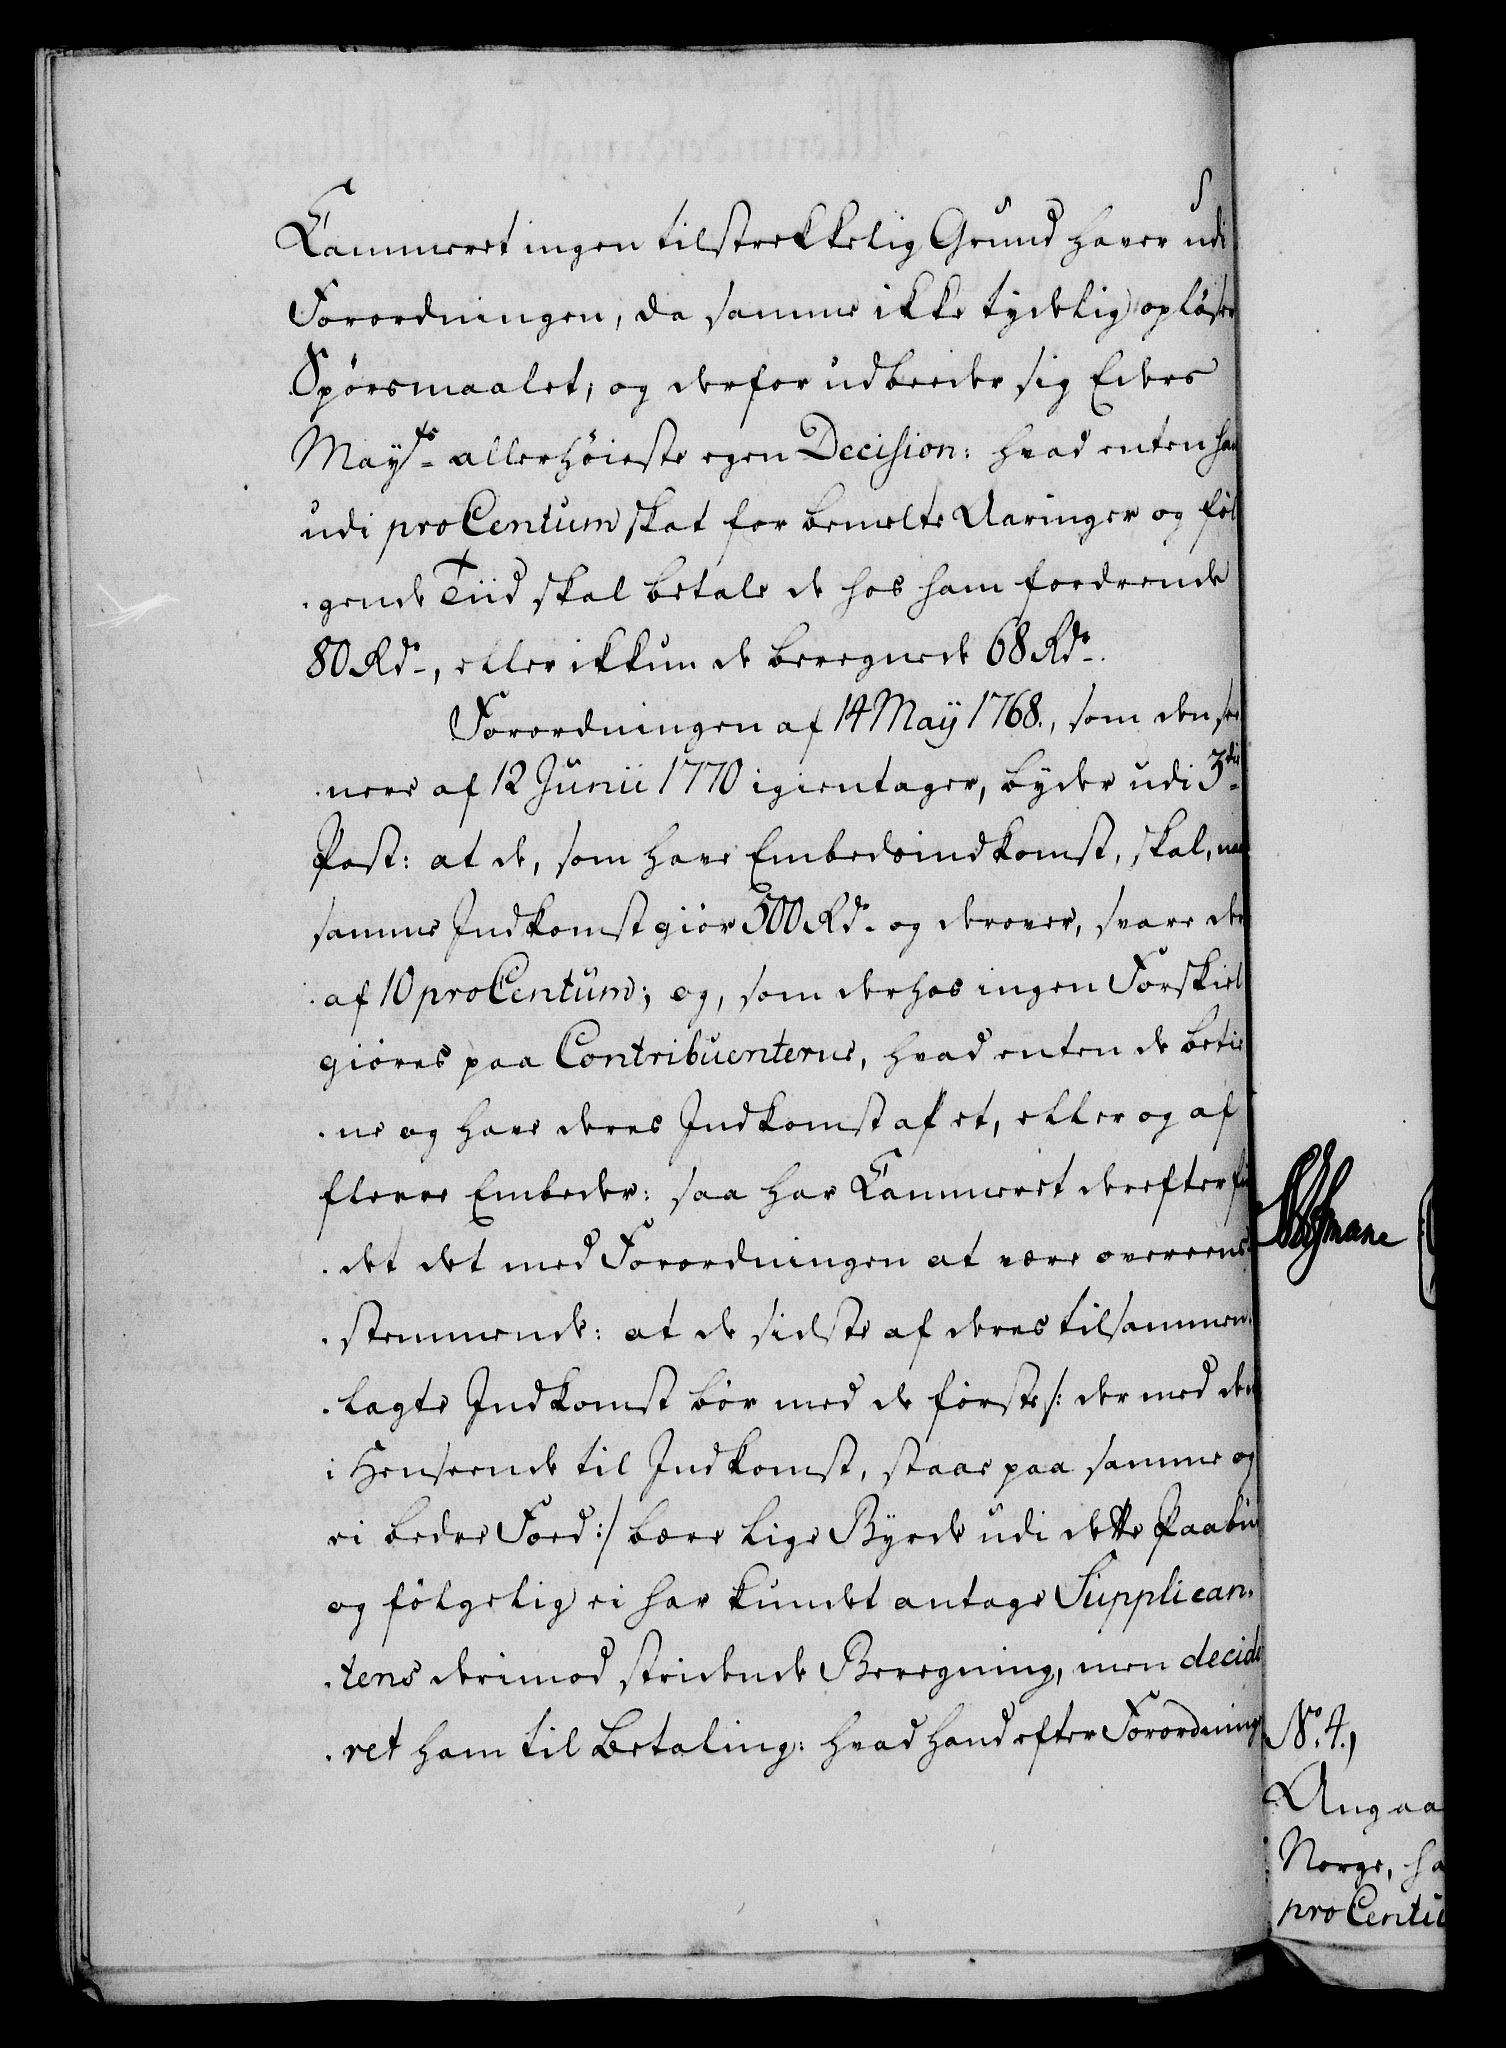 Kammeret ingen tilstrekkelig Grund haver udi
Forordningen, da samme ikke tydelig opløser
Spörsmaalet; og derfor udbeeder sig Eders
Mayts allerhöieste egen Decision: hvad enten han
udi proCentum skat for bemelte Aaringer og föl
gende Tiid skal betale de hos ham fordrende
80 Rdr, eller ikkun de beregnede 68 Rdr.
Forordningen af 14 Maÿ 1768., som den see
nere af 12 Junii 1770 igientager, byder udi 3die
Post: at de, som have Embedsindkomst, skal, naar
samme Indkomst giör 500 Rdr. og derover, svare der
af 10 proCentum; og, som derhos ingen Forskiel
giöres paa Contribuenterne, hvad enten de betie
ne og have deres Indkomst af et, eller og af
fleere Embeder: saa har Kammeret derefter fun
det det med Forordningen at være overeens
stemmende: at de sidste af deres tilsammen
lagte Indkomst bör med de förste /: der med dem
i Henseende til Indkomst, staae paa samme og
ei bedre Food :/ bære lige Byrde udi dette Paabud
og fölgelig ei har kundet antage Supplican
tens derimod stridende Beregning, men decide
ret ham til Betaling: hvad hand efter Forordning
No. 4,
Angaa
Norge, ha
pro Centu